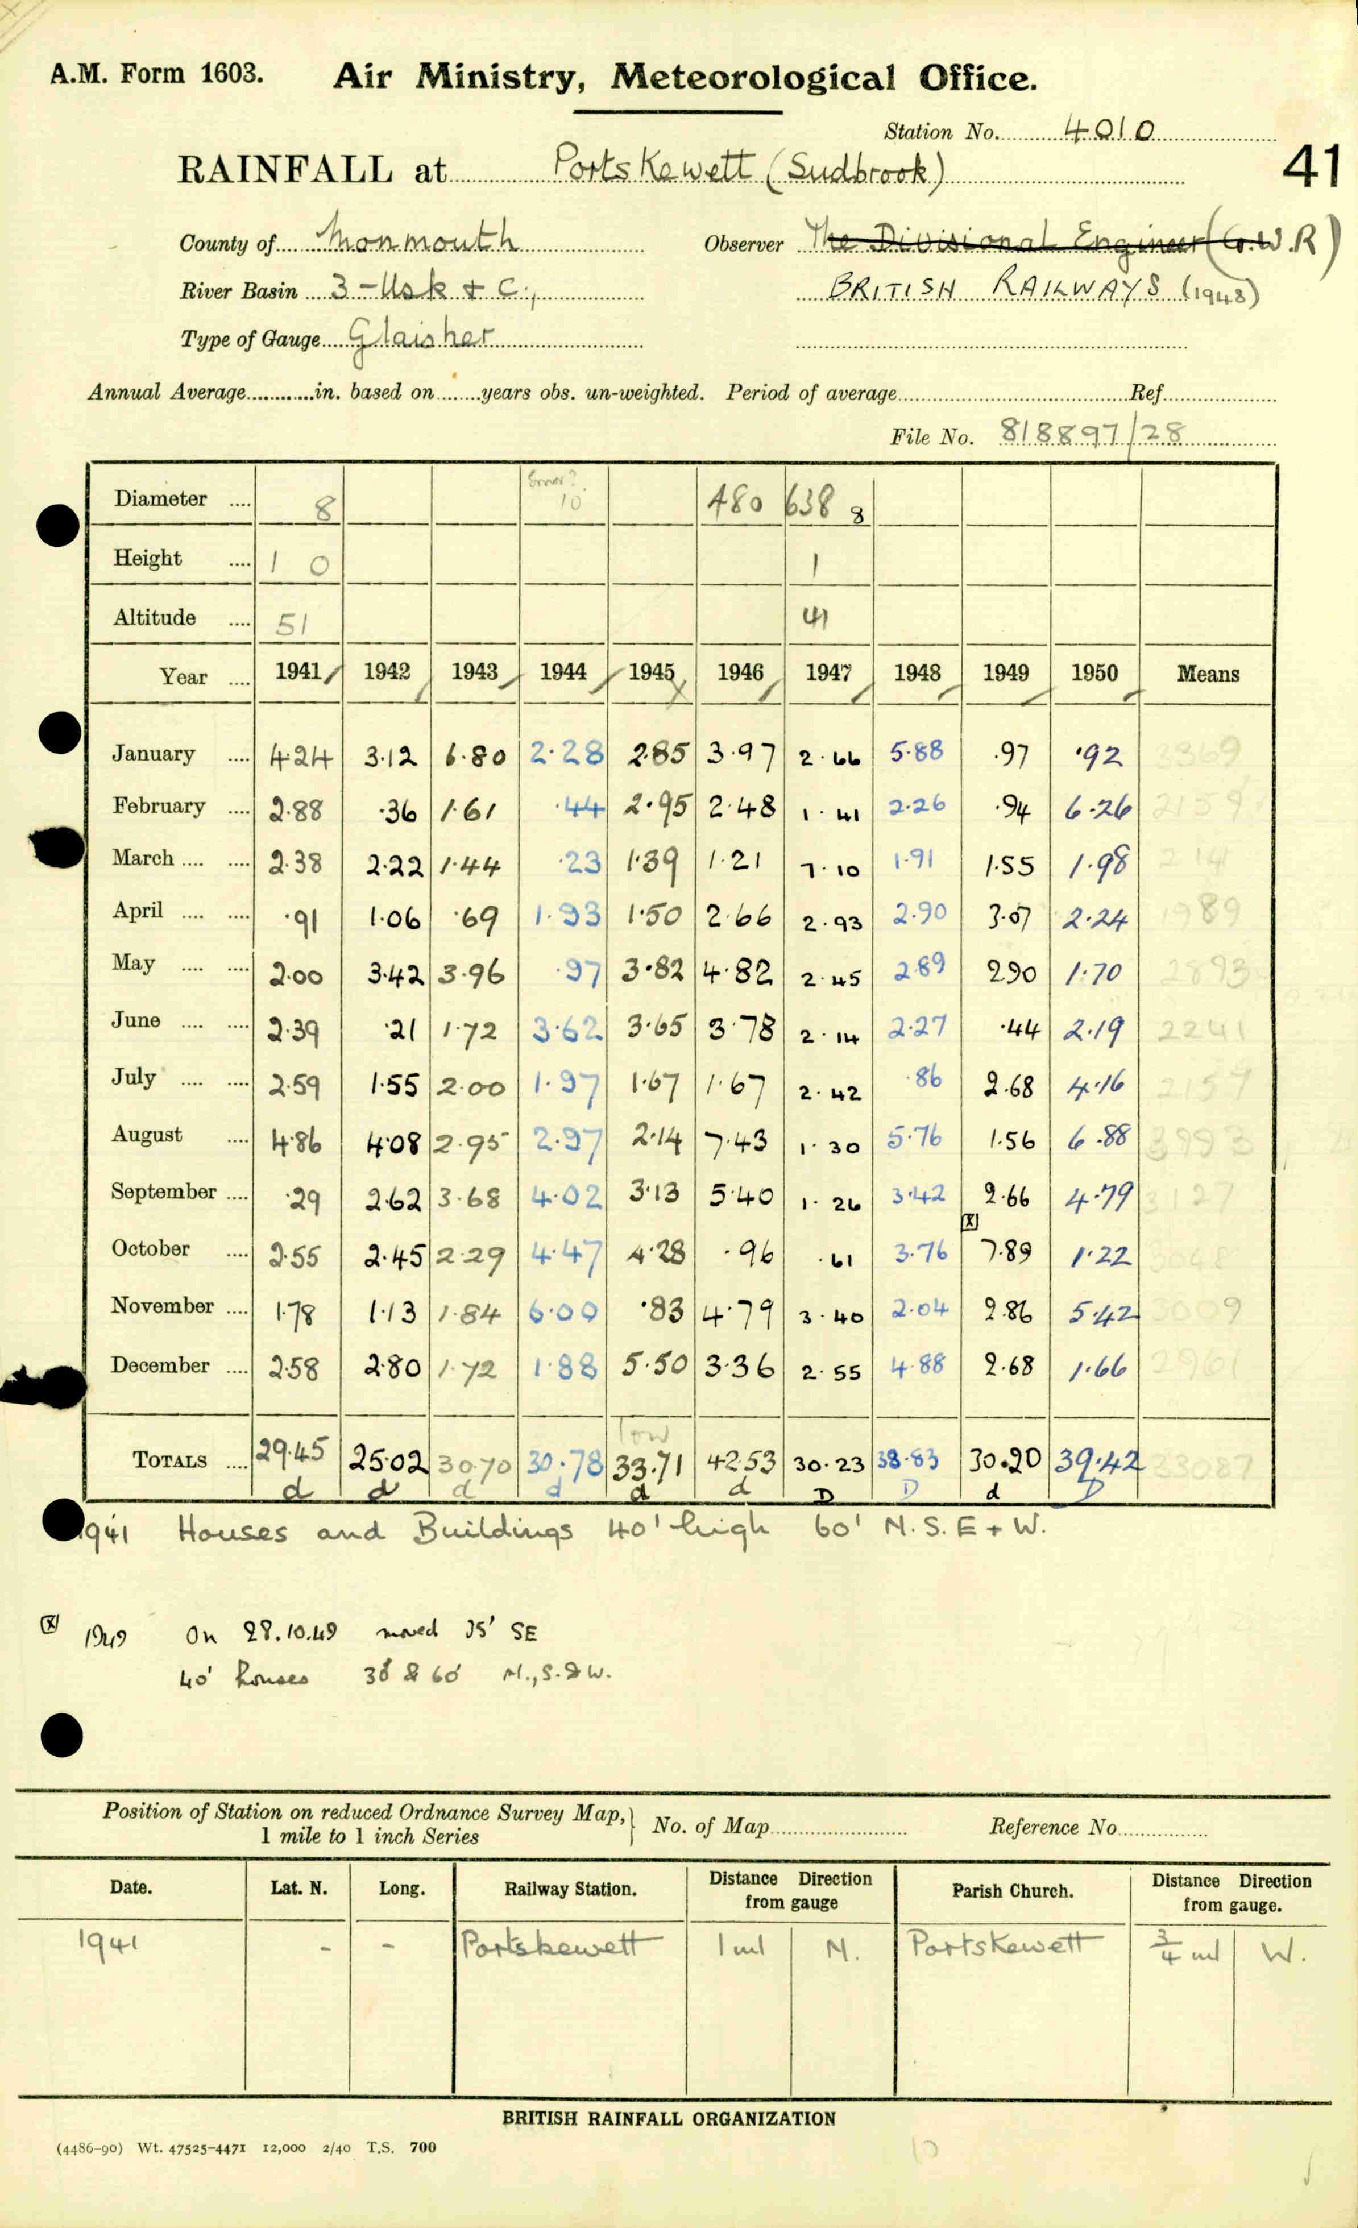 A.M. Form 1603. Air Ministry, Meteorological Office.
Station No. 4010
41
RAINFALL at Portskewett (Sudbrook)
County of Monmouth Observer The Divisional Engineer (G.W.R)
River Basin 3 - Usk & C., BRITISH RAILWAYS (1948)
Type of Gauge Glaisher
Annual Average in. based on years obs. un-weighted. Period of average Ref.
File No. 818897/28
Diameter 8 Error? 10 480 638 8
Height 1 0 1
Altitude 51 41
Year 1941 1942 1943 1944 1945 1946 1947 1948 1949 1950 Means
January 4.24 3.12 6.80 2.28 2.85 3.97 2.66 5.88 .97 .92 3369
February 2.88 .36 1.61 .44 2.95 2.48 1.41 2.26 .94 6.26 2159
March 2.38 2.22 1.44 .23 1.39 1.21 7.10 1.91 1.55 1.98 2141
April .91 1.06 .69 1.93 1.50 2.66 2.93 2.90 3.07 2.24 1989
May 2.00 3.42 3.96 .97 3.82 4.82 2.45 2.89 2.90 1.70 2893
June 2.39 .21 1.72 3.62 3.65 3.78 2.14 2.27 .44 2.19 2241
July 2.59 1.55 2.00 1.97 1.67 1.67 2.42 .86 2.68 4.16 2157
August 4.86 4.08 2.95 2.97 2.14 7.43 1.30 5.76 1.56 6.88 3993
September .29 2.62 3.68 4.02 3.13 5.40 1.26 3.42 2.66 4.79 3127
October 2.55 2.45 2.29 4.47 4.28 .96 .61 3.76 x 7.89 1.22 3048
November 1.78 1.13 1.84 6.00 .83 4.79 3.40 2.04 2.86 5.42 3009
December 2.58 2.80 1.72 1.88 5.50 3.36 2.55 4.88 2.68 1.66 2961
low
TOTALS 29.45 25.02 30.70 30.78 33.71 42.53 30.23 38.83 30.20 39.42 33087
d d d d d d D D d D
1941 Houses and Buildings 40' high 60' N.S.E + W.
x 1949 On 28.10.49 moved 35' SE
40' houses 30' & 60' N., S. & W.
Position of Station on reduced Ordnance Survey Map, 1 mile to 1 inch Series No. of Map Reference No.
Date. Lat. N. Long. Railway Station. Distance Direction from gauge Parish Church. Distance Direction from gauge.
1941 - - Portskewett 1 ml N. Portskewett 3/4 ml W.
BRITISH RAINFALL ORGANIZATION
(4486-90) Wt. 47525-4471 12,000 2/40 T.S. 700
10